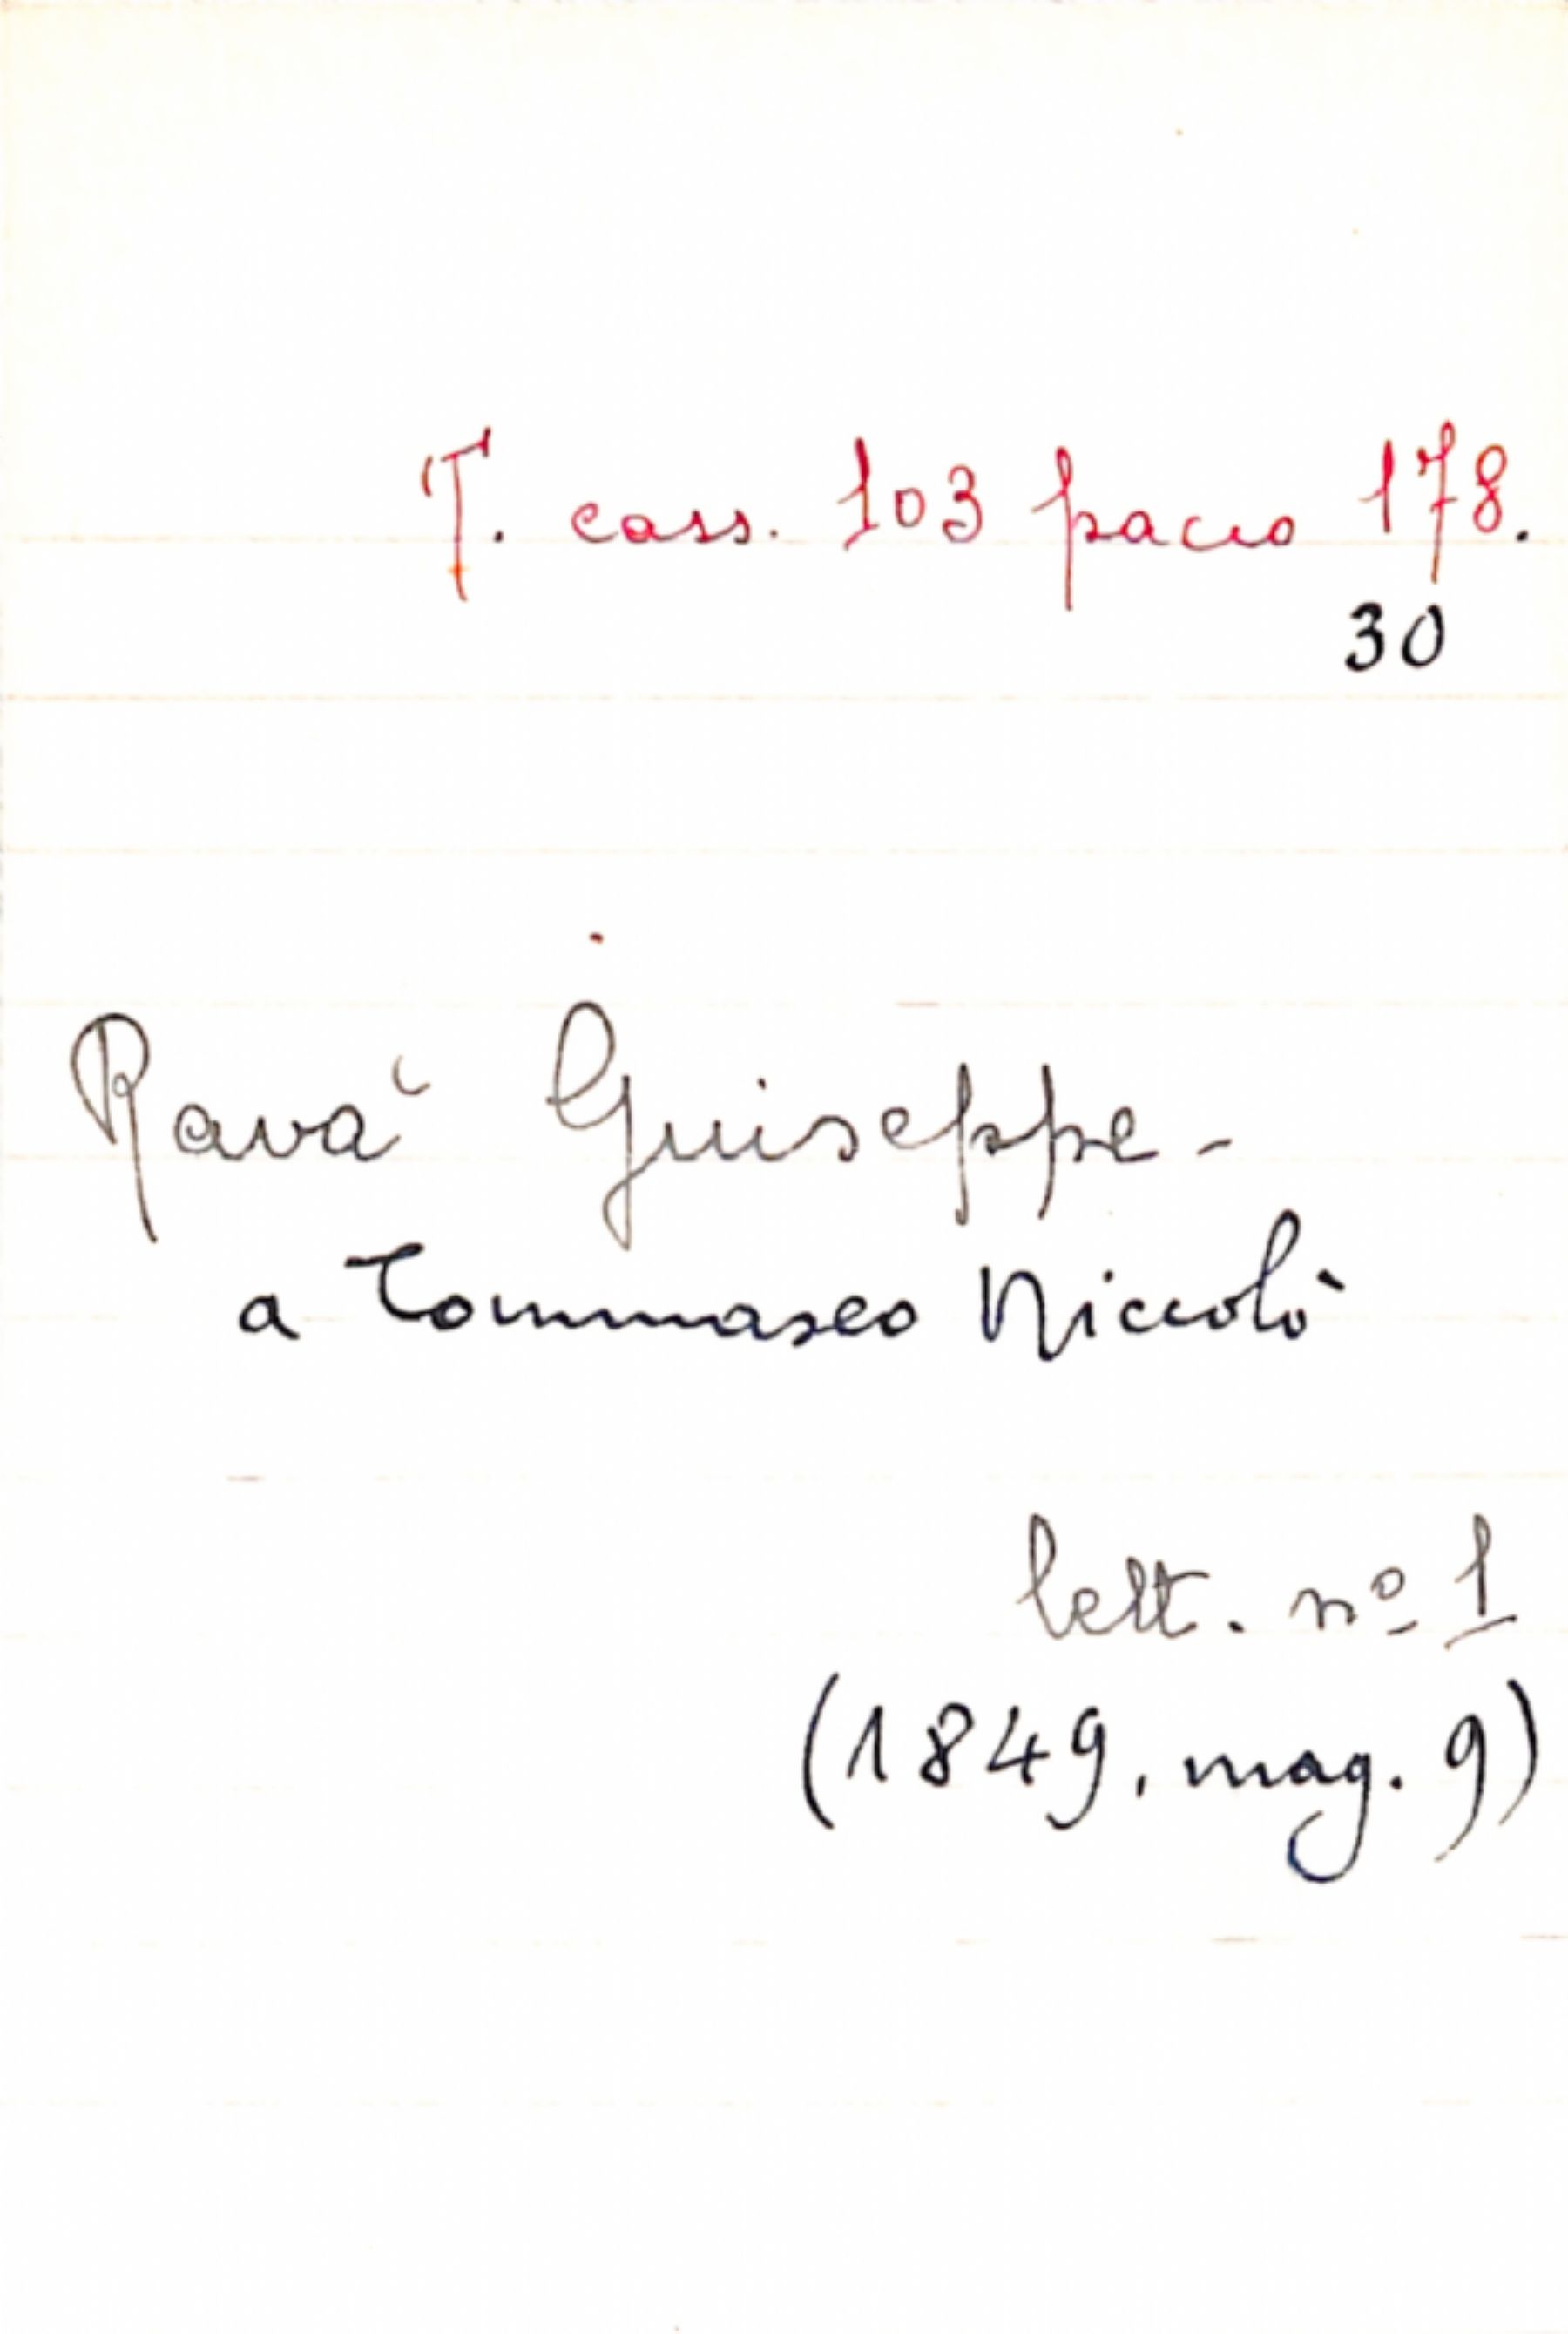 T. cass. 103 pacco 178.
30
Ravà Giuseppe -
a Tommaseo Niccolò
lett. nº 1
(1849, mag. 9)